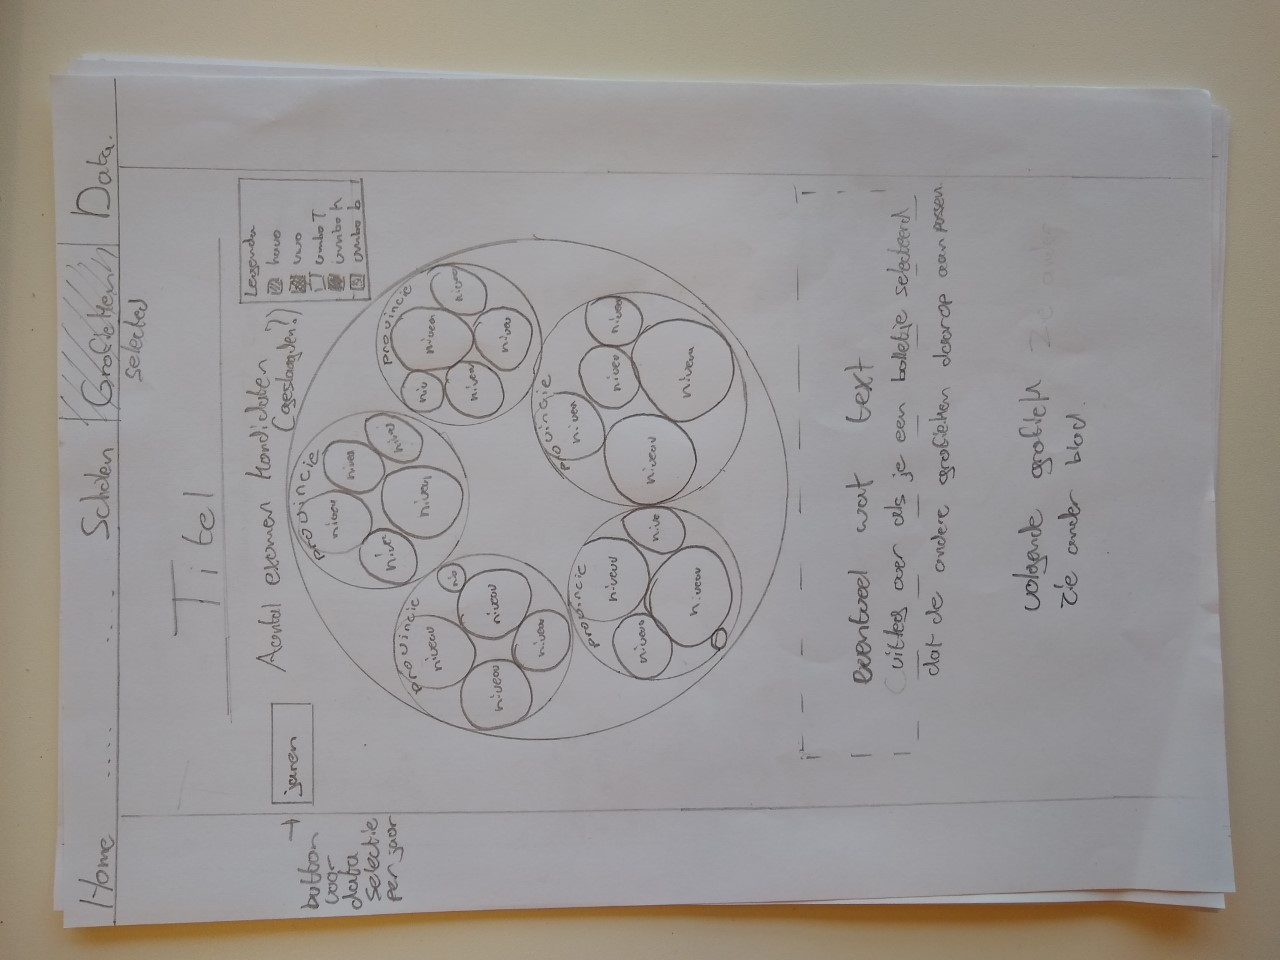 Home ..... .... Scholen Grafieken Data.
selected
Titel
Aantal examen kandidaten
(geslaagden?)
Legenda
havo
vwo
vmbo T
vmbo k
vmbo b
jaren
button
voor
data
selectie
per jaar
provincie
niveau
niveau
niveau
niveau
niveau
provincie
niv
niveau
niveau
niveau
niveau
provincie
niveau
niv
niveau
niveau
niveau
provincie
niveau
niveau
niveau
niveau
niveau
provincie
niveau
niveau
nive
niveau
eventueel wat text
(uitleg over als je een bolletje selecteerd
dat de andere grafieken daarop aanpassen.
volgende grafiek
zie ander blad.